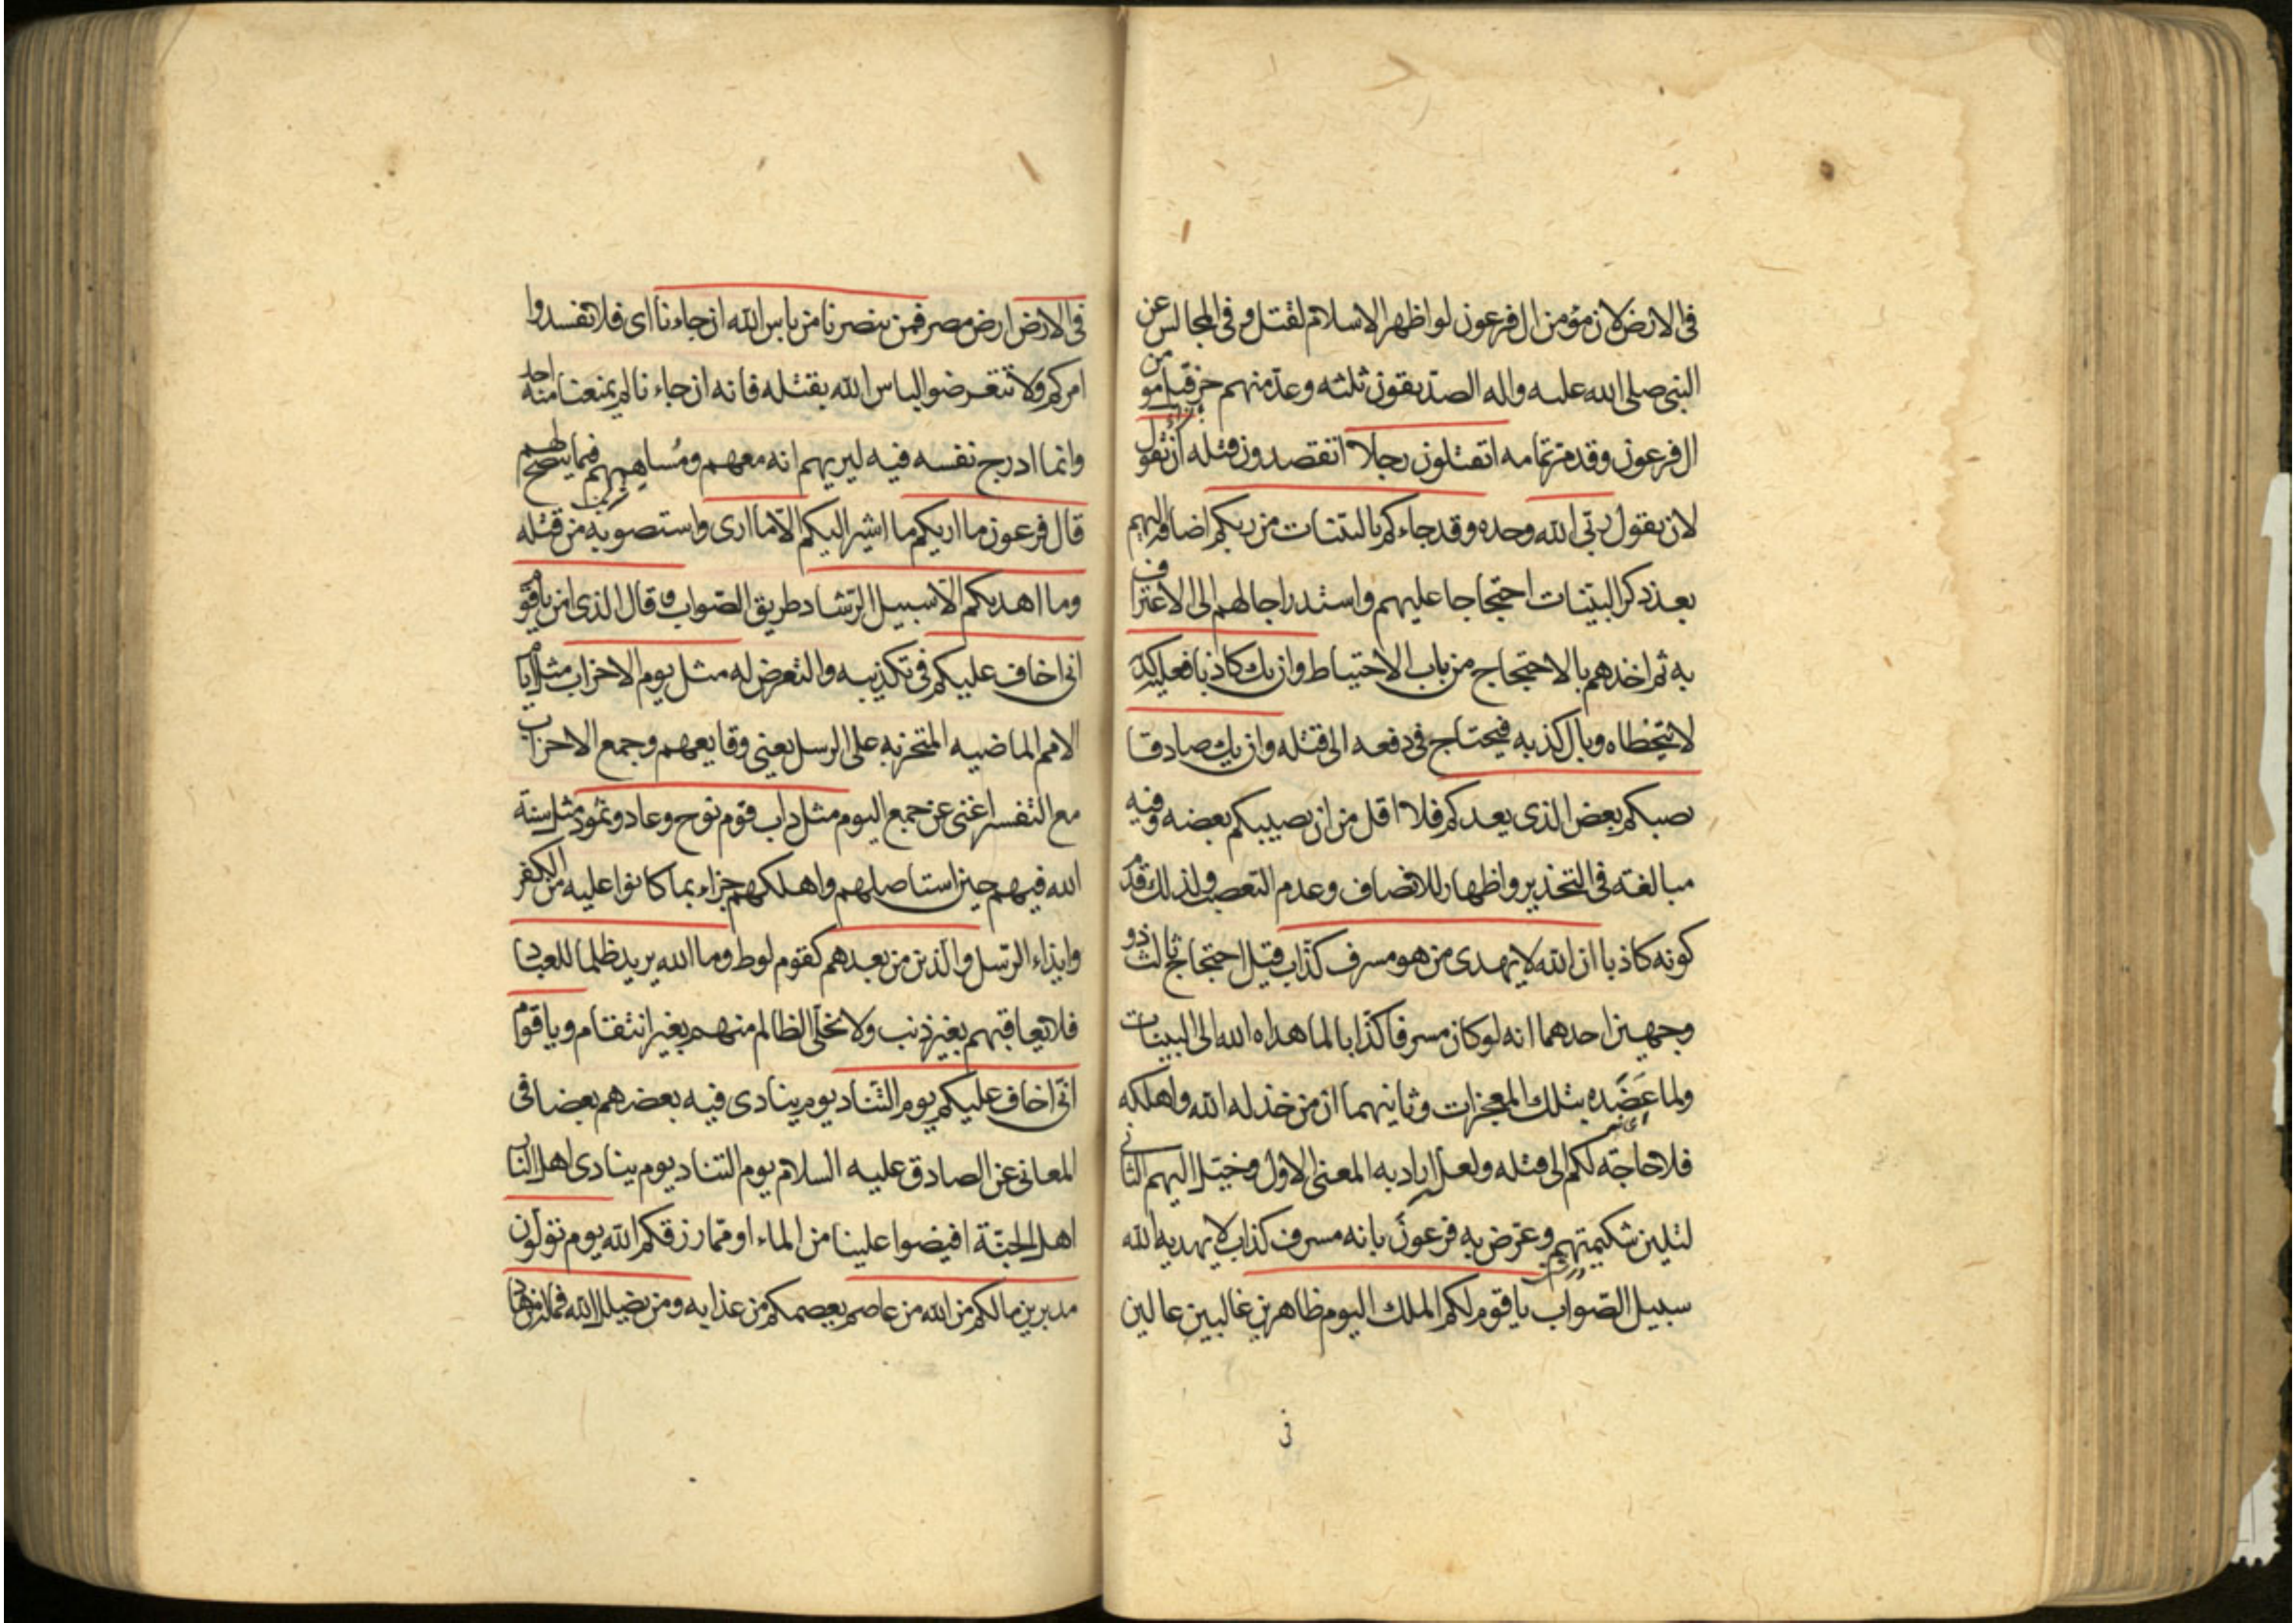 في الارض لان مؤمن ال فرعون لو اظهر الاسلام لقتل و في المجالس عن
النبي صلى الله عليه واله الصديقون ثلثه وعد منهم حزقيل مؤمن
ال فرعون وقد مر تمامه اتقتلون رجلا اتقصدون قتله ان يقول
لان يقول ربي الله وحده وقد جاءكم بالبينات من ربكم اضافه اليهم
بعد ذكر البينات احتجاجا عليهم واستدراجا لهم الى الاعتراف
به ثم اخذهم بالاحتجاج من باب الاحتياط وان يك كاذبا فعليه كذبه
لا يتخطاه وبال كذبه فيحتاج في دفعه الى قتله وان يك صادقا
يصبكم بعض الذي يعدكم فلا اقل من ان يصيبكم بعضه وفيه
مبالغة في التحذير واظهار للانصاف وعدم التعصب ولذلك قدم
كونه كاذبا ان الله لا يهدي من هو مسرف كذاب قيل احتجاج ثالث ذو
وجهين احدهما انه لو كان مسرفا كذابا لما هداه الله الى البينات
ولما عضده بتلك المعجزات وثانيهما ان من خذله الله واهلكه
فلا حاجة لكم الى قتله ولعله اراد به المعنى الاول وخيل اليهم الثاني
لتلين شكيمتهم وعرض به فرعون بانه مسرف كذاب لا يهديه الله
سبيل الصواب يا قوم لكم الملك اليوم ظاهرين غالبين عالين
في
في الارض ارض مصر فمن ينصرنا من باس الله ان جاءنا اي فلا تفسدوا
امركم ولا تتعرضوا لباس الله بقتله فانه ان جاءنا لم يمنعنا منه احد
وانما ادرج نفسه فيه ليريهم انه معهم ومساهمهم فيما ينصح لهم
قال فرعون ما اريكم ما اشير اليكم الا ما ارى واستصوبه من قتله
وما اهديكم الا سبيل الرشاد طريق الصواب و قال الذي امن يا قوم
اني اخاف عليكم في تكذيبه والتعرض له مثل يوم الاحزاب مثل ايام
الامم الماضيه المتحزبه على الرسل يعني وقايعهم وجمع الاحزاب
مع التفسير اغنى عن جمع اليوم مثل داب قوم نوح وعاد وثمود مثل سنة
الله فيهم حين استاصلهم واهلكهم جزاء بما كانوا عليه من الكفر
وايذاء الرسل والذين من بعدهم كقوم لوط وما الله يريد ظلما للعباد
فلا يعاقبهم بغير ذنب ولا يخلي الظالم منهم بغير انتقام ويا قوم
اني اخاف عليكم يوم التناد يوم ينادي فيه بعضهم بعضا في
المعاني عن الصادق عليه السلام يوم التناد يوم ينادي اهل النار
اهل الجنة افيضوا علينا من الماء او مما رزقكم الله يوم تولون
مدبرين ما لكم من الله من عاصم يعصمكم من عذابه ومن يضلل الله فما له من هاد